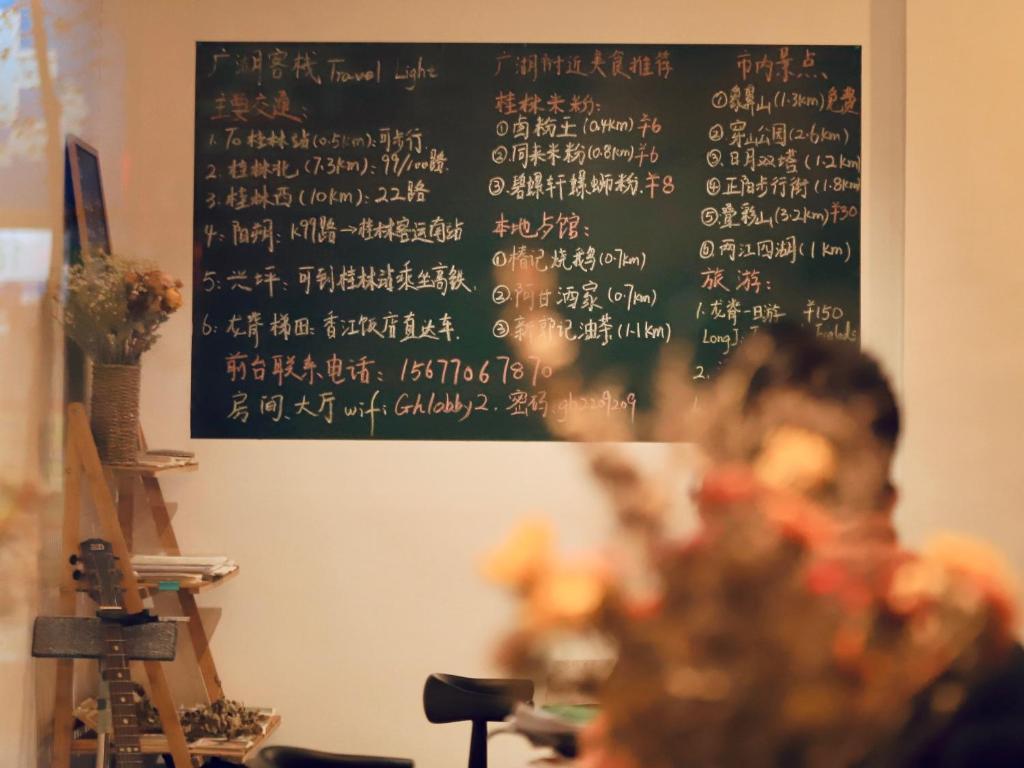 广湖客栈 Travel Light
主要交通:
1. 桂林站(0.5km):可步行.
2. 桂林北(7.3km):99/100路.
3. 桂林西(10km):22路
4: 阳朔: K99路→桂林客运南站
5: 兴坪: 可到桂林站乘坐高铁.
6: 龙脊梯田: 香江饭店直达车.
前台联系电话: 1567706787
房间、大厅 wifi: Ghlobby2. 密码:
广湖附近美食推荐
桂林米粉:
①卤粉王(0.4km)¥6
②同来米粉(0.8km)¥6
③碧螺轩螺蛳粉.¥8
本地菜馆:
①椿记烧鹅(0.7km)
②阿甘酒家(0.7km)
③新郭记油茶(1.1km)
市内景点
①象鼻山(1.3km)免费
②穿山公园(2.6km)
③日月双塔(1.2km)
④正阳步行街(1.8km)
⑤叠彩山(3.2km)¥30
⑥两江四湖(1km)
旅游:
1. 龙脊一日游 ¥150
2.